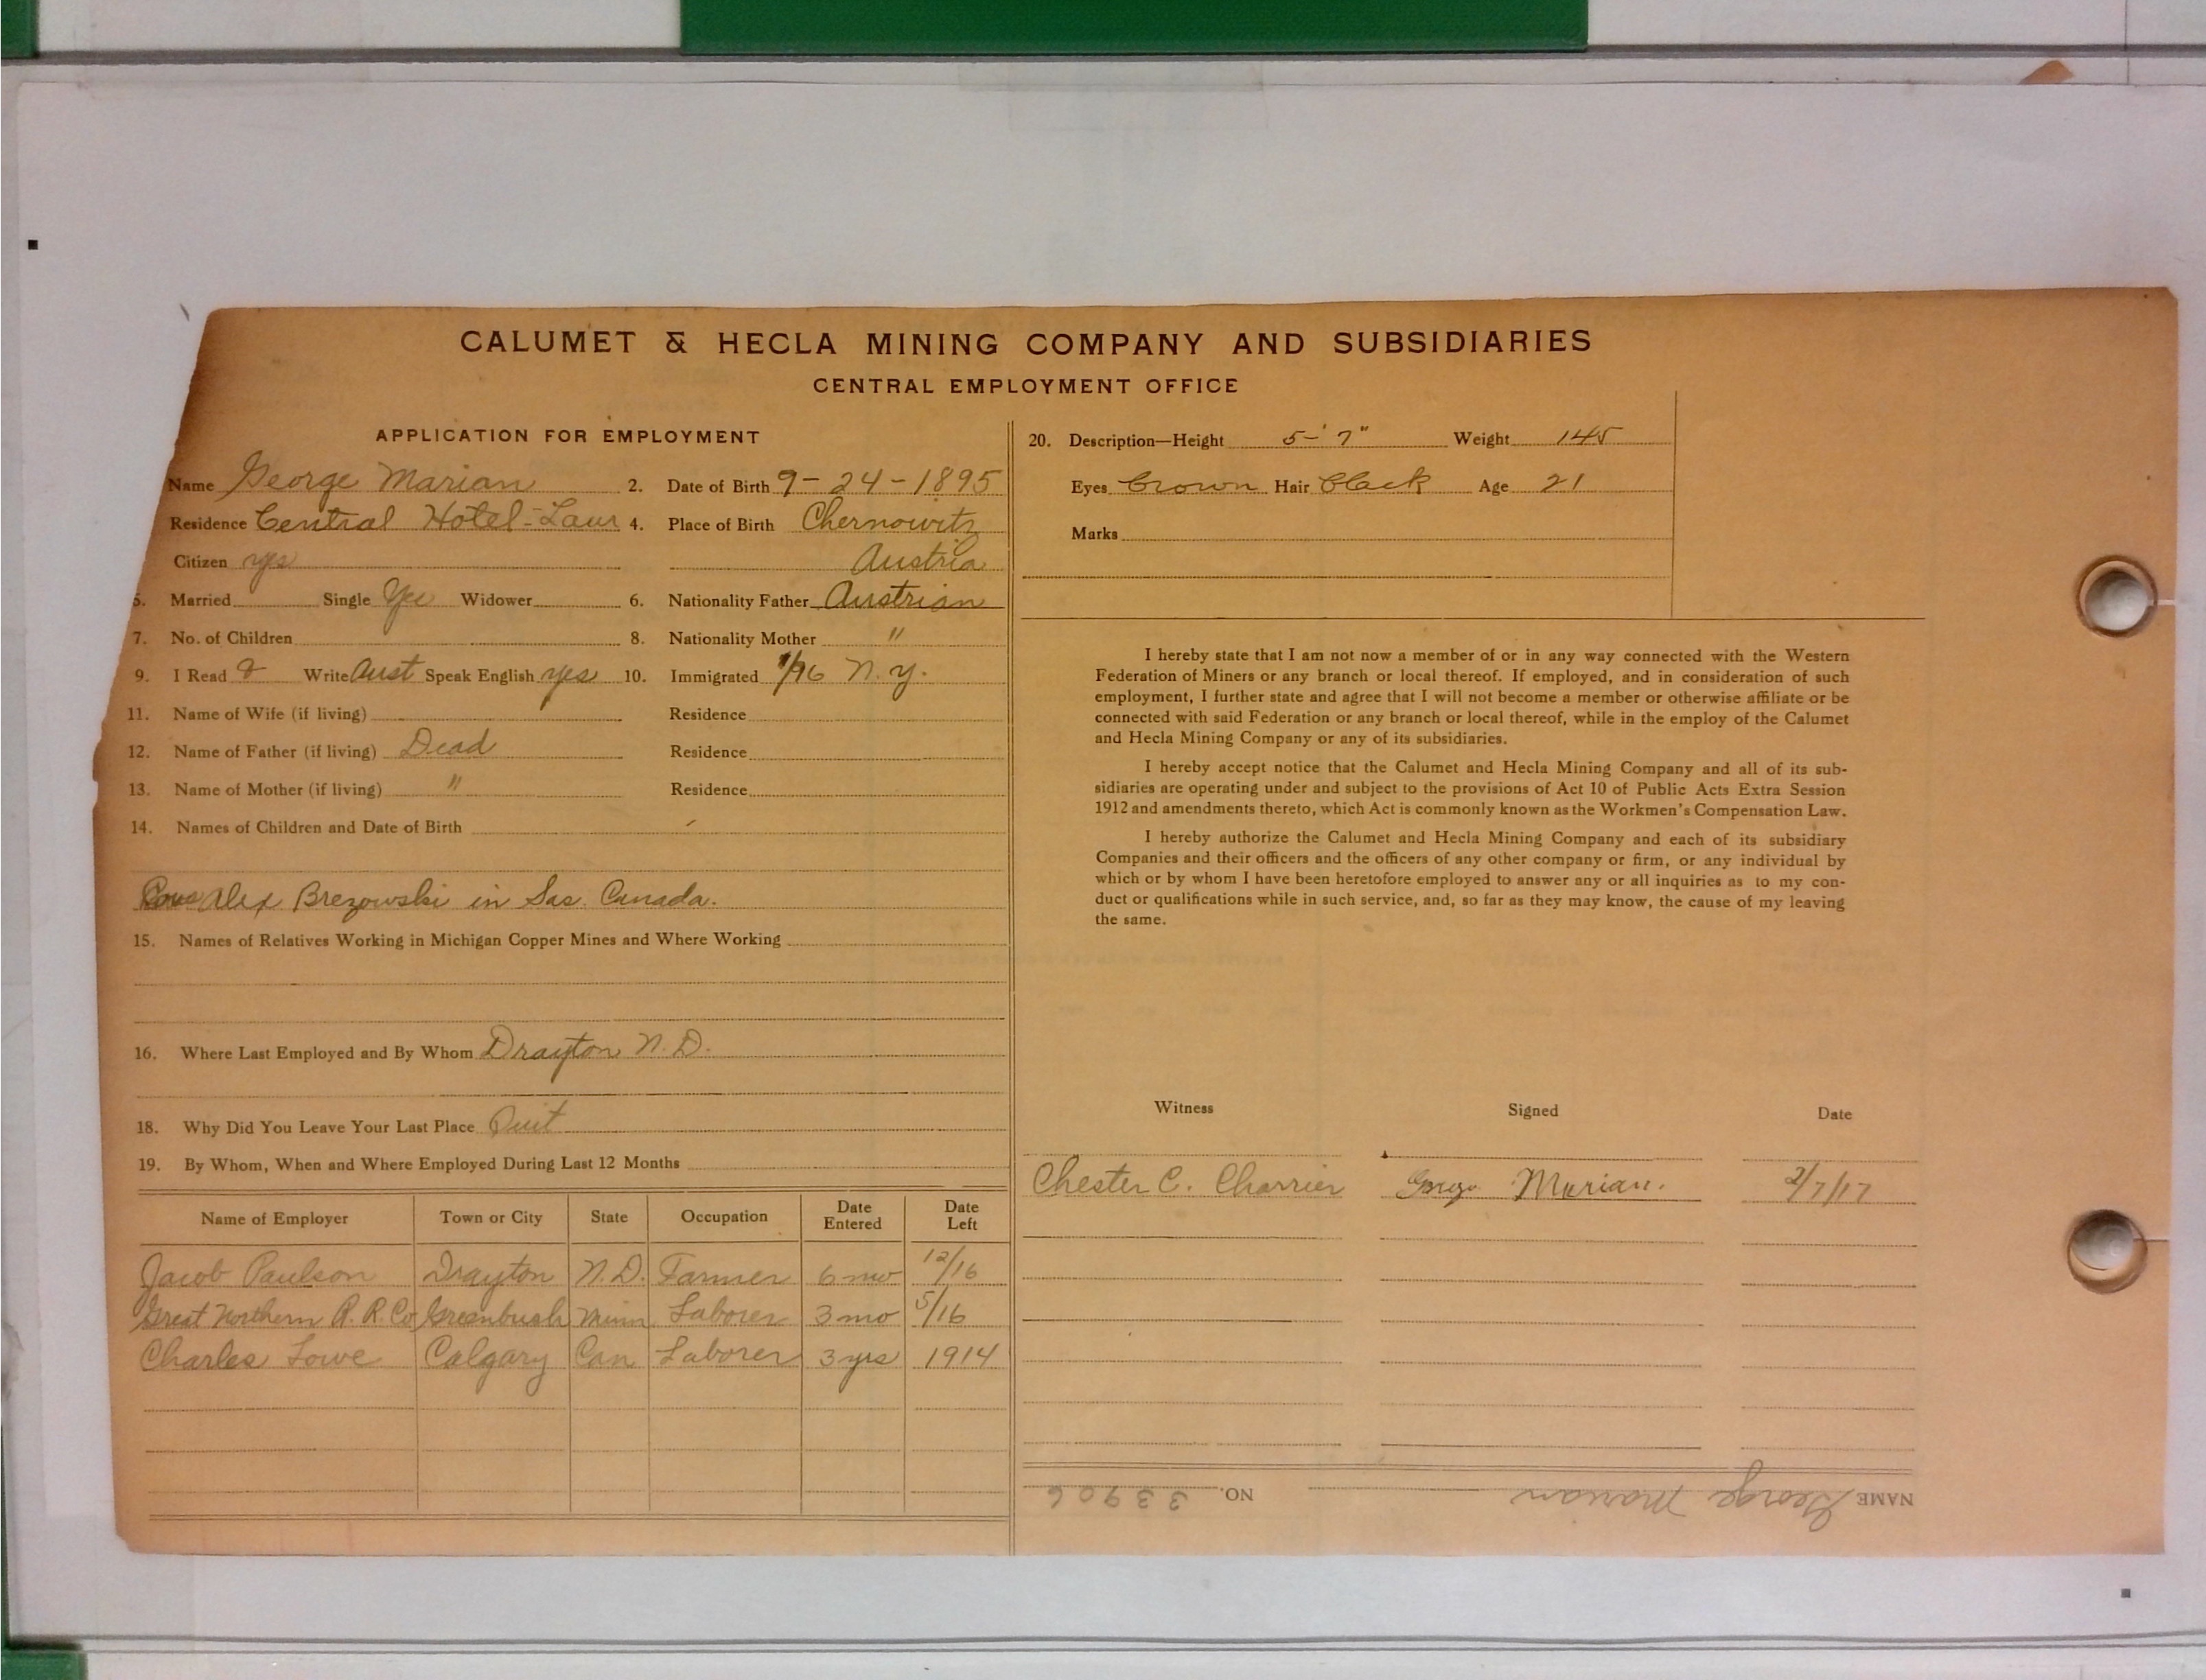 CALUMET & HECLA MINING COMPANY AND SUBSIDIARIES
CENTRAL EMPLOYMENT OFFICE
APPLICATION FOR EMPLOYMENT
Name George Marian 2. Date of Birth 9-24-1895
Residence Central Hotel-Laur 4. Place of Birth Chernowitz
Citizen yes Austria
5. Married Single Yes Widower 6. Nationality Father Austrian
7. No. of Children 8. Nationality Mother "
9. I Read & Write Aust Speak English yes 10. Immigrated N.Y.
11. Name of Wife (if living) Residence
12. Name of Father (if living) Dead Residence
13. Name of Mother (if living) " Residence
14. Names of Children and Date of Birth
Alex Brezowski in Sas. Canada.
15. Names of Relatives Working in Michigan Copper Mines and Where Working
16. Where Last Employed and By Whom Drayton N.D.
18. Why Did You Leave Your Last Place Quit
19. By Whom, When and Where Employed During Last 12 Months
Name of Employer Town or City State Occupation Date Entered Date Left
Jacob Paulson Drayton N.D. Farmer 6 mo 12/16
Great Northern R.R. Co Greenbush Minn Laborer 3 mo 5/16
Charles Lowe Calgary Can Laborer 3 yrs 1914
20. Description—Height 5-'7" Weight 145
Eyes Brown Hair Black Age 21
Marks
I hereby state that I am not now a member of or in any way connected with the Western
Federation of Miners or any branch or local thereof. If employed, and in consideration of such
employment, I further state and agree that I will not become a member or otherwise affiliate or be
connected with said Federation or any branch or local thereof, while in the employ of the Calumet
and Hecla Mining Company or any of its subsidiaries.
I hereby accept notice that the Calumet and Hecla Mining Company and all of its sub-
sidiaries are operating under and subject to the provisions of Act 10 of Public Acts Extra Session
1912 and amendments thereto, which Act is commonly known as the Workmen's Compensation Law.
I hereby authorize the Calumet and Hecla Mining Company and each of its subsidiary
Companies and their officers and the officers of any other company or firm, or any individual by
which or by whom I have been heretofore employed to answer any or all inquiries as to my con-
duct or qualifications while in such service, and, so far as they may know, the cause of my leaving
the same.
Witness Signed Date
Chester C. Charrier George Marian. 2/7/17
NAME George Marian NO. 33906